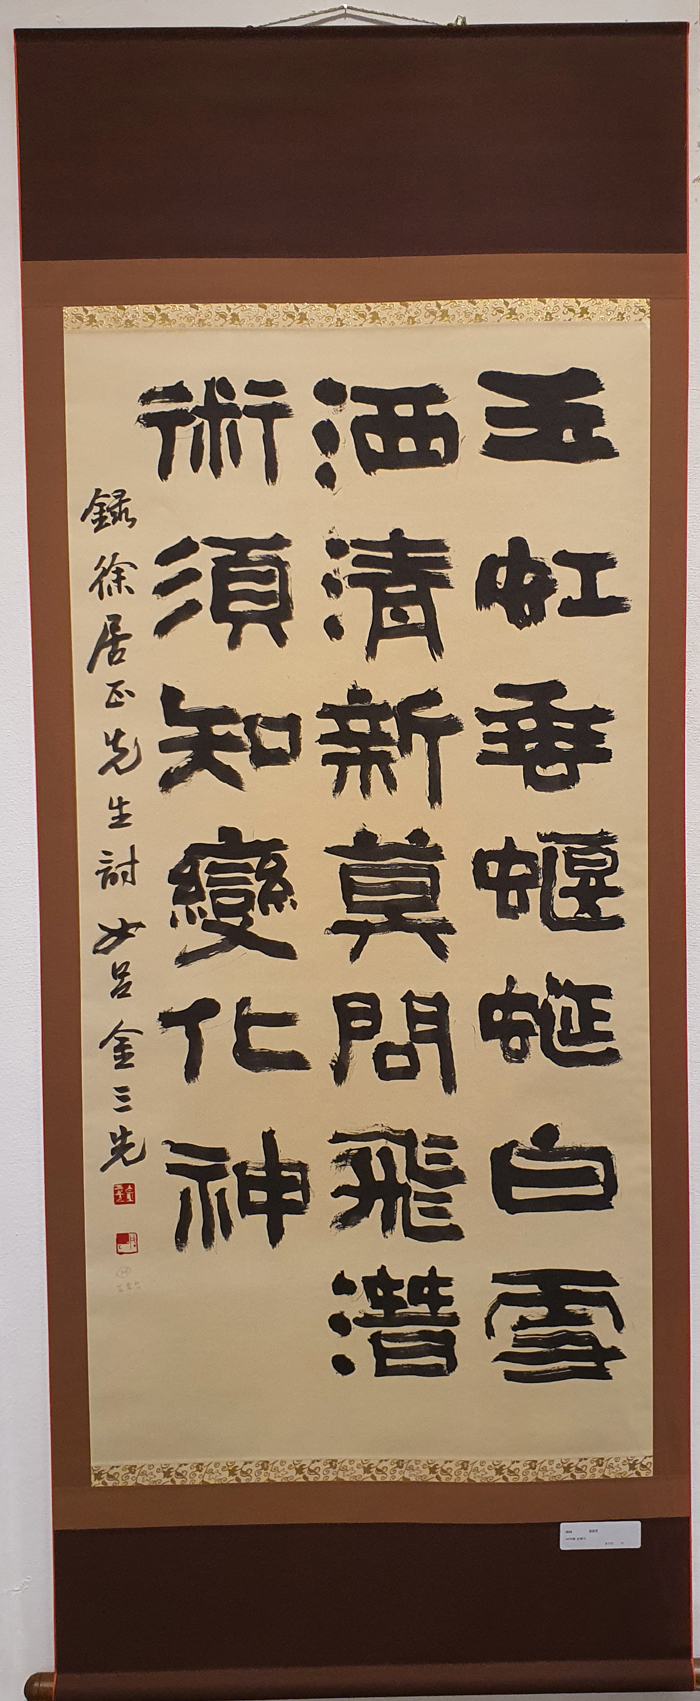 玉虹垂蝘蜒白雪
洒清新莫問飛潛
術須知變化神
錄徐居正先生詩 呂金三先